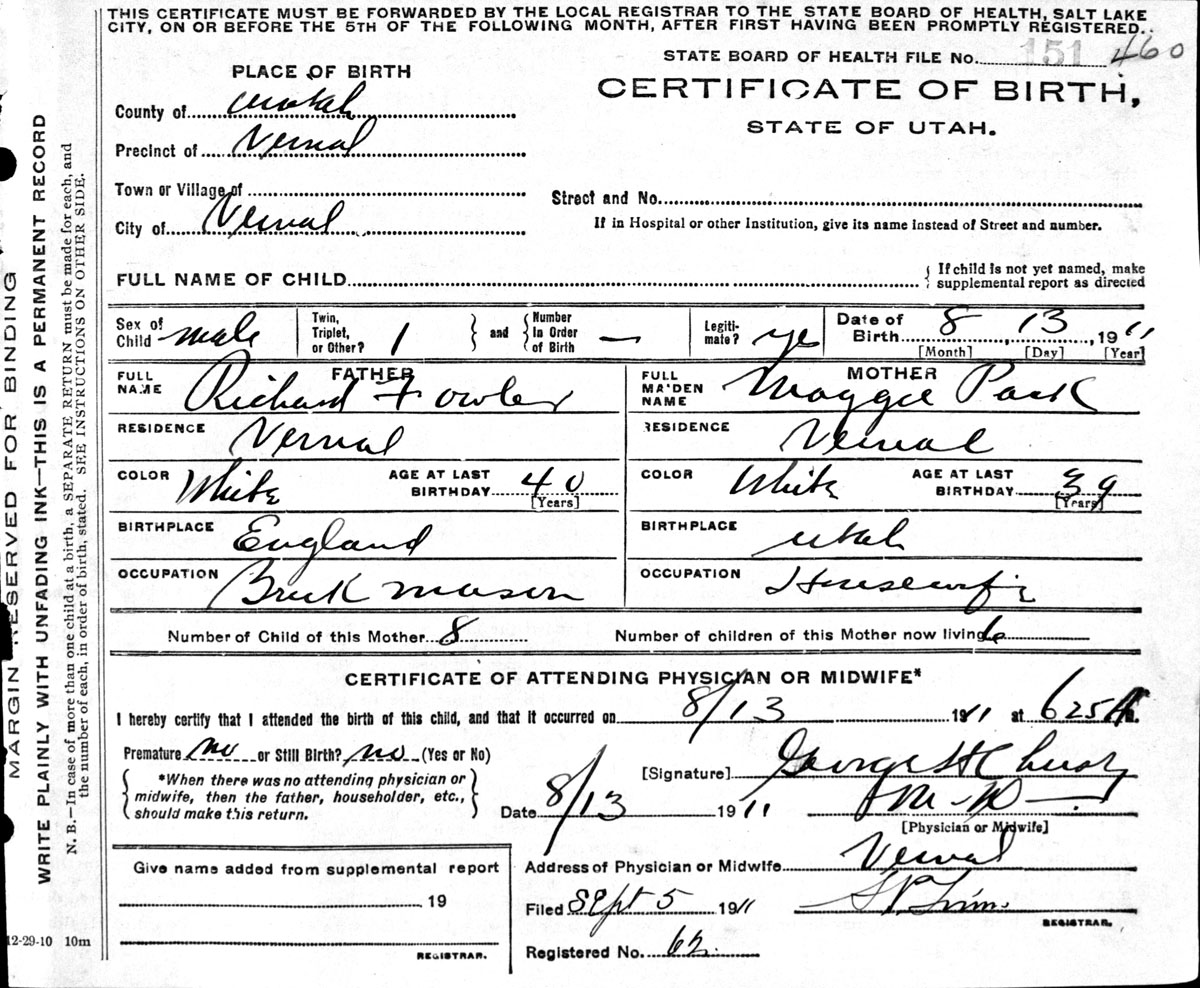 THIS CERTIFICATE MUST BE FORWARDED BY THE LOCAL REGISTRAR TO THE STATE BOARD OF HEALTH, SALT LAKE
CITY, ON OR BEFORE THE 5TH OF THE FOLLOWING MONTH, AFTER FIRST HAVING BEEN PROMPTLY REGISTERED.
STATE BOARD OF HEALTH FILE No. 151 460
PLACE OF BIRTH
CERTIFICATE OF BIRTH,
STATE OF UTAH.
County of
Precinct of Vernal
Town or Village of
Street and No.
City of Vernal
If in Hospital or other Institution, give its name instead of Street and number.
FULL NAME OF CHILD
If child is not yet named, make
supplemental report as directed
Sex of Child male Twin, Triplet, or Other? 1 and Number In Order of Birth — Legiti-mate? yes Date of Birth 8, 13, 1911
[Month] [Day] [Year]
FATHER MOTHER
FULL NAME Richard Fowler FULL MAIDEN NAME Maggie Pack
RESIDENCE Vernal RESIDENCE Vernal
COLOR White AGE AT LAST BIRTHDAY 40 [Years] COLOR White AGE AT LAST BIRTHDAY 39 [Years]
BIRTHPLACE England BIRTHPLACE Utah
OCCUPATION Brick mason OCCUPATION Housewife
Number of Child of this Mother 8 Number of children of this Mother now living 6
CERTIFICATE OF ATTENDING PHYSICIAN OR MIDWIFE*
I hereby certify that I attended the birth of this child, and that it occurred on 8/13 1911 at 625 A m.
Premature no or Still Birth? no (Yes or No)
*When there was no attending physician or
midwife, then the father, householder, etc.,
should make this return.
[Signature] George H
Date 8/13 1911 M-D
[Physician or Midwife]
Address of Physician or Midwife Vernal
Filed Sept 5 1911
REGISTRAR.
Registered No. 62
Give name added from supplemental report
19
REGISTRAR.
12-29-10 10m
MARGIN RESERVED FOR BINDING
WRITE PLAINLY WITH UNFADING INK—THIS IS A PERMANENT RECORD
N. B.—In case of more than one child at a birth, a SEPARATE RETURN must be made for each, and
the number of each, in order of birth, stated. SEE INSTRUCTIONS ON OTHER SIDE.